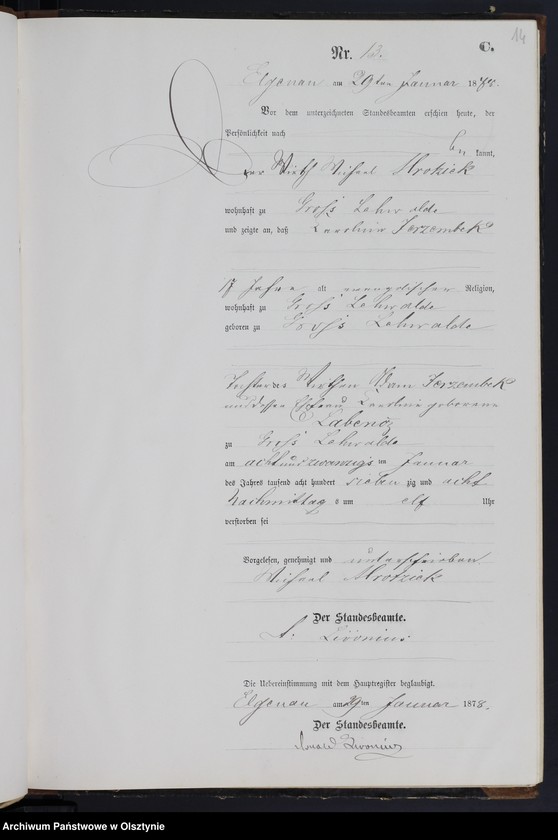 14
C.
Nr. 13.
Elgenau am 29ten Januar 1878.
Vor dem unterzeichneten Standesbeamten erschien heute, der
Persönlichkeit nach
be kannt,
der Wirth Michael Mrotziek
wohnhaft zu Groß Lehwalde
und zeigte an, daß Caroline Jerzembek
17 Jahre alt evangelischer Religion,
wohnhaft zu Groß Lehwalde
geboren zu Groß Lehwalde
Tochter des Wirthen Adam Jerzembek
und dessen Ehefrau Caroline geborene
Labenz
zu Groß Lehwalde
am acht und zwanzigsten Januar
des Jahres tausend acht hundert sieben zig und acht
Nachmittag s um elf Uhr
verstorben sei
Vorgelesen, genehmigt und unterschrieben
Michael Mrotziek
Der Standesbeamte.
Livonius
Die Uebereinstimmung mit dem Hauptregister beglaubigt.
Elgenau am 29ten Januar 1878.
Der Standesbeamte.
Livonius
Archiwum Państwowe w Olsztynie